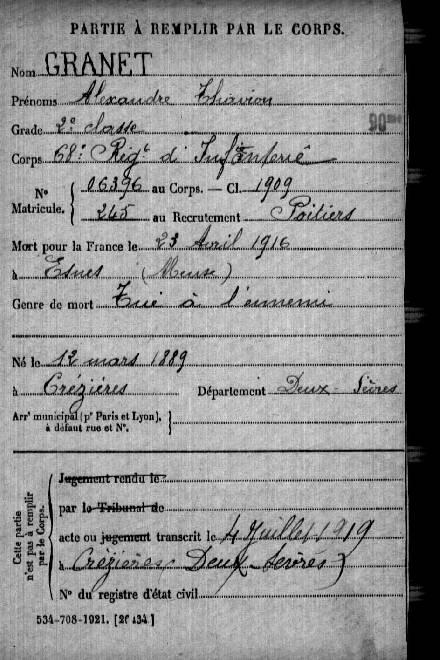 PARTIE À REMPLIR PAR LE CORPS.
Nom GRANET
Prénoms Alexandre
Grade 2e classe
90
Corps 68e Régt d'Infanterie
Nº Matricule. { 06396 au Corps. — Cl. 1909
245 au Recrutement Poitiers
Mort pour la France le 23 Avril 1916
à Esnes (Meuse)
Genre de mort Tué à l'ennemi
Né le 12 mars 1889
à Crézières Département Deux-Sèvres
Arrt municipal (pr Paris et Lyon),
à défaut rue et Nº.
Cette partie
n'est pas à remplir
par le Corps.
Jugement rendu le
par le Tribunal de
acte ou jugement transcrit le 4 Juillet 1919
à Crézières (Deux Sèvres)
Nº du registre d'état civil
534-708-1921. [26434]